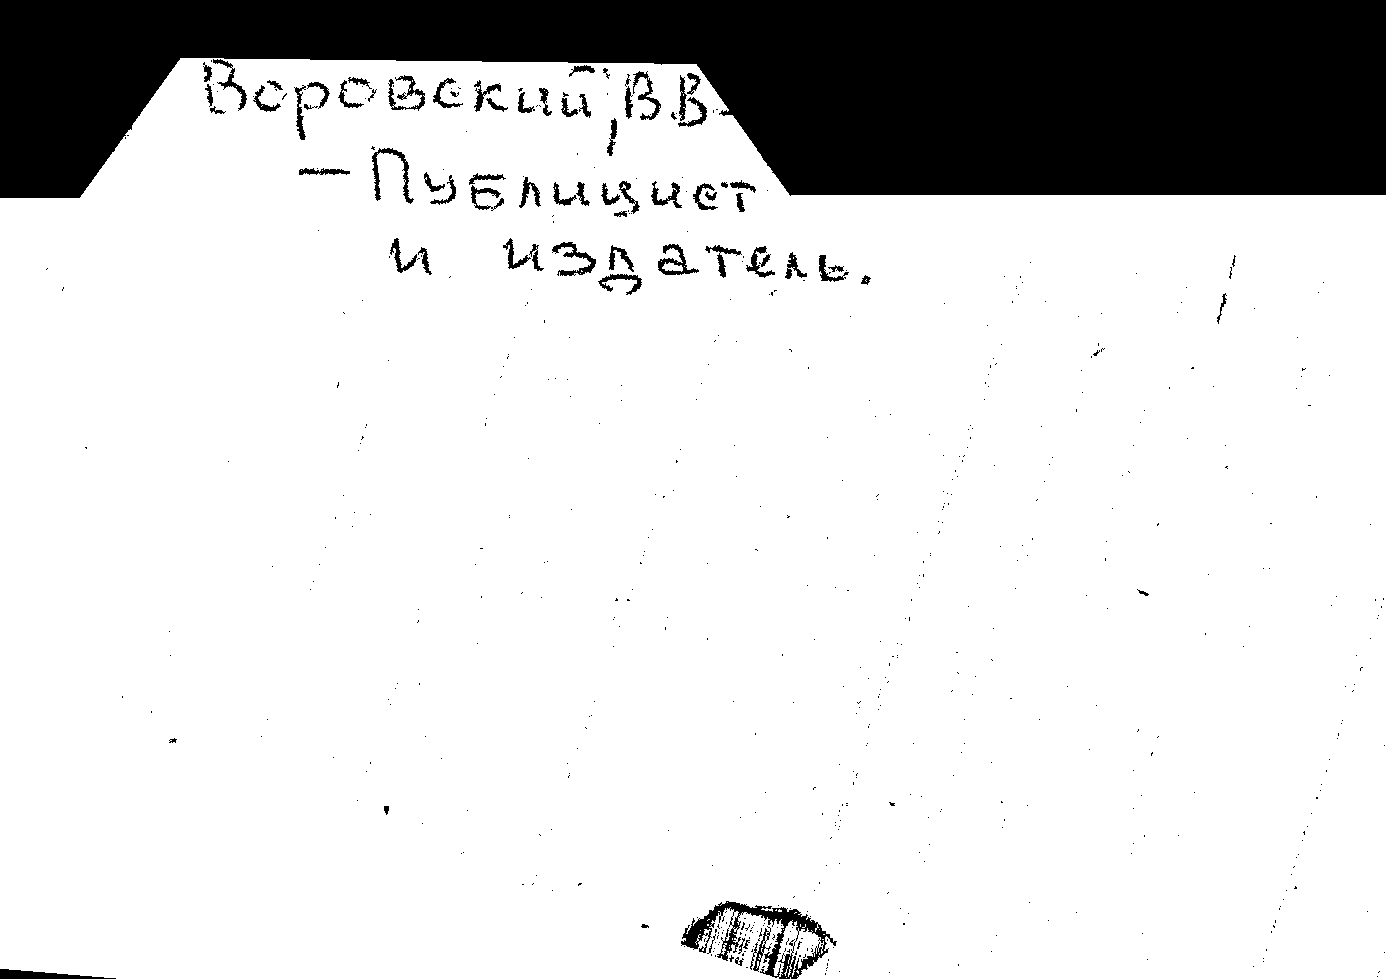 Воровский, В.В.
— Публицист
и издатель.